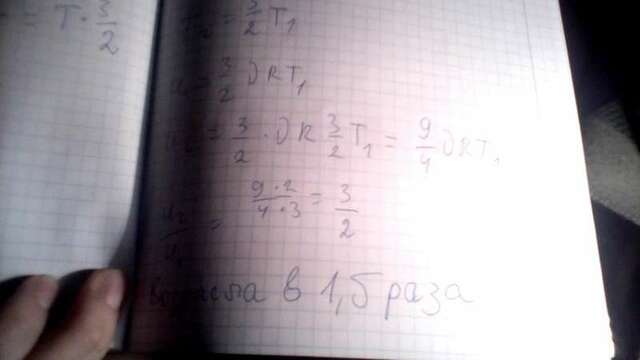 = T · 3/2
T₂ = 3/2 T₁
U₁ = 3/2 νRT₁
U₂ = 3/2 · νR 3/2 T₁ = 9/4 νRT₁
U₂/U₁ = 9·2/4·3 = 3/2
Возросла в 1,5 раза